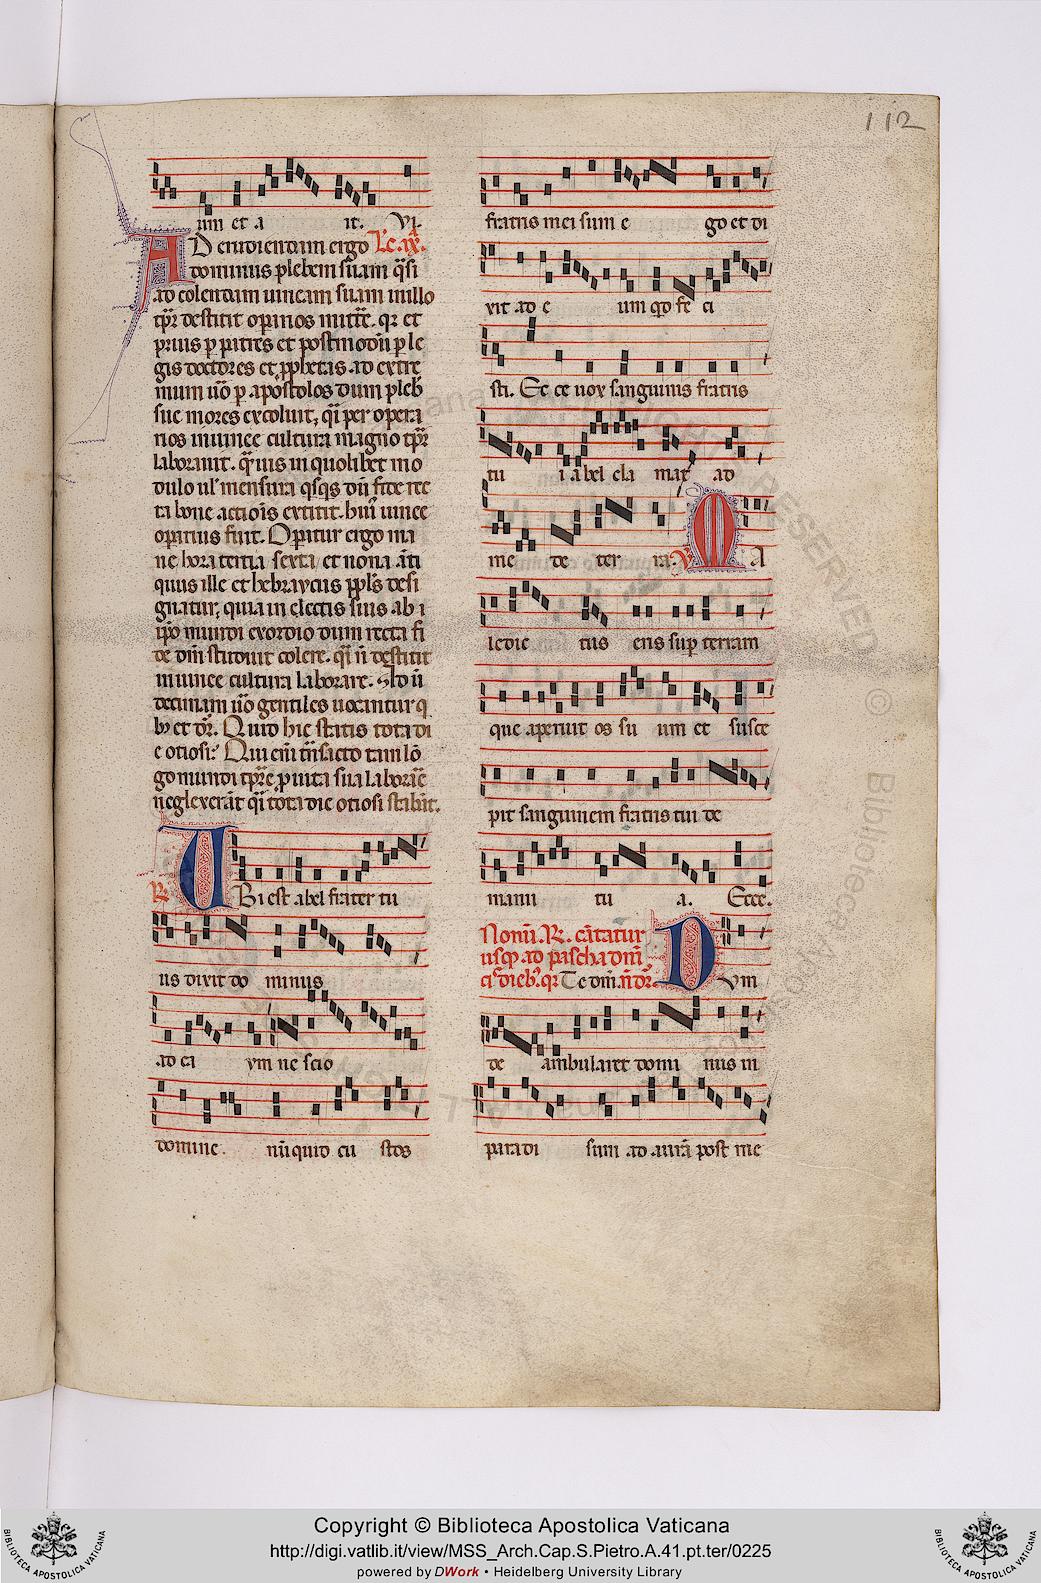 112
um et a it. Vi.
AD erudiendam ergo Lc. ix.
dominus plebem suam q̄si
ad colendam uineam suam nullo
tp̄r destitit op̄arios mitt̄e. qr et
prius p̱ patres et postmodū p̱ le
gis doctores et p̱phetas. ad extre
mum uō p̱ apostolos dum pleb̄
sue mores excoluit, q̄i per opera
rios in uinee cultura magno tp̄r
laborauit. q̄muis in quolibet mo
dulo ul' mensura q̄sq̄s cū fide rec
ta bone actiois extitit. hui' uinee
op̄arius fuit. Op̄atur ergo ma
ne hora tertia sexta et nona anti
quus ille et hebraycus pp̄ls desi
gnatur, quia in electis suis ab i
ip̄o mundi exordio dum recta fi
de dm̄ studuit colere. q̄i n̄ destitit
in uinee cultura laborare. Ad ū
decimam uō gentiles uocantur q
b; et dr̄. Quid hic statis tota di
e otiosi? Qui em̄ trāsacto tam lō
go mundi tp̄re p̱ uita sua laborar̄e
neglexerāt q̄i tota die otiosi stabāt.
R. UBi est abel frater tu
us dixit do minus
ad ca ym ne scio
domine nūquid cu stos
fratris mei sum e go et di
xit ad e um qd fe ci
sti. Ec ce uox sanguinis fratris
tu i abel cla mat ad
me de ter ra. V. MA
ledic tus eris sup̱ terram
que aperuit os su um et susce
pit sanguinem fratris tui de
manu tu a. Ecce.
Nonū. R. cātatur
usq; ad pascha dom̄i
cis dieb; qr Te dm̄. n̄ dr̄. DVm
de ambularet domi nus in
paradi sum ad aurā post me
Copyright © Biblioteca Apostolica Vaticana
http://digi.vatlib.it/view/MSS_Arch.Cap.S.Pietro.A.41.pt.ter/0225
powered by DWork • Heidelberg University Library
BIBLIOTECA APOSTOLICA VATICANA
BIBLIOTECA APOSTOLICA VATICANA